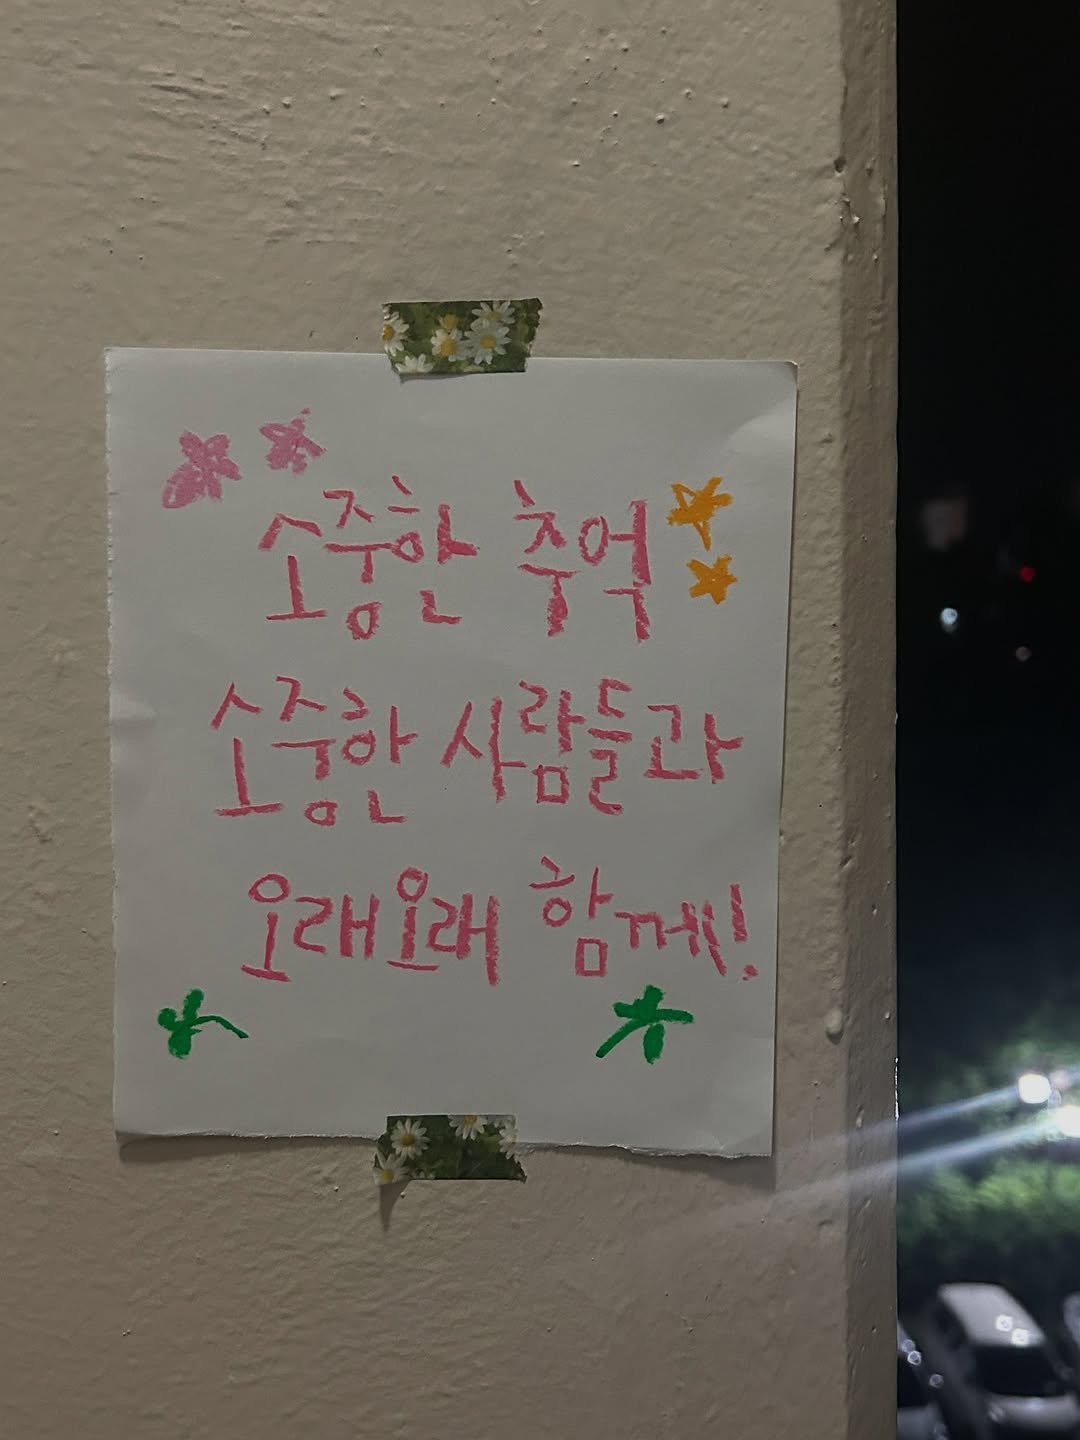 소중한 추억
소중한 사람들과
오래오래 함께!